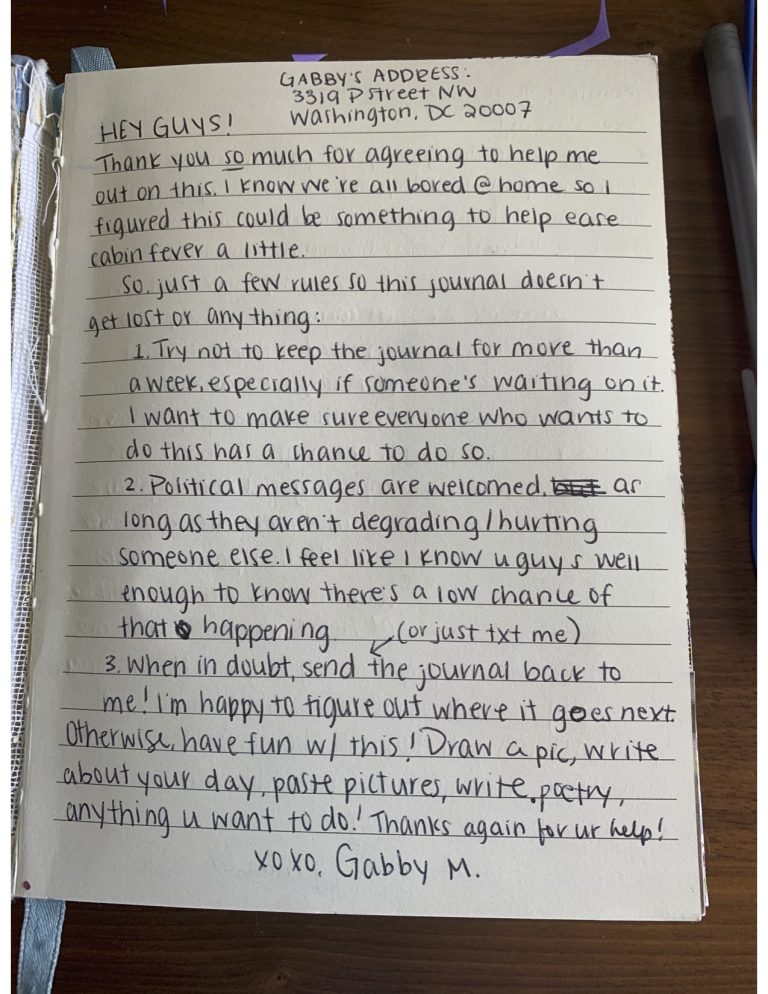 GABBY'S ADDRESS:
3319 P Street NW
Washington, DC 20007
HEY GUYS!
Thank you so much for agreeing to help me
out on this. I know we're all bored @ home so I
figured this could be something to help ease
cabin fever a little.
So, just a few rules so this journal doesn't
get lost or anything:
1. Try not to keep the journal for more than
a week, especially if someone's waiting on it.
I want to make sure everyone who wants to
do this has a chance to do so.
2. Political messages are welcomed, as
long as they aren't degrading/hurting
someone else. I feel like I know u guys well
enough to know there's a low chance of
that happening. (or just txt me)
3. When in doubt, send the journal back to
me! I'm happy to figure out where it goes next.
Otherwise, have fun w/ this! Draw a pic, write
about your day, paste pictures, write poetry,
anything u want to do! Thanks again for ur help!
xoxo, Gabby M.